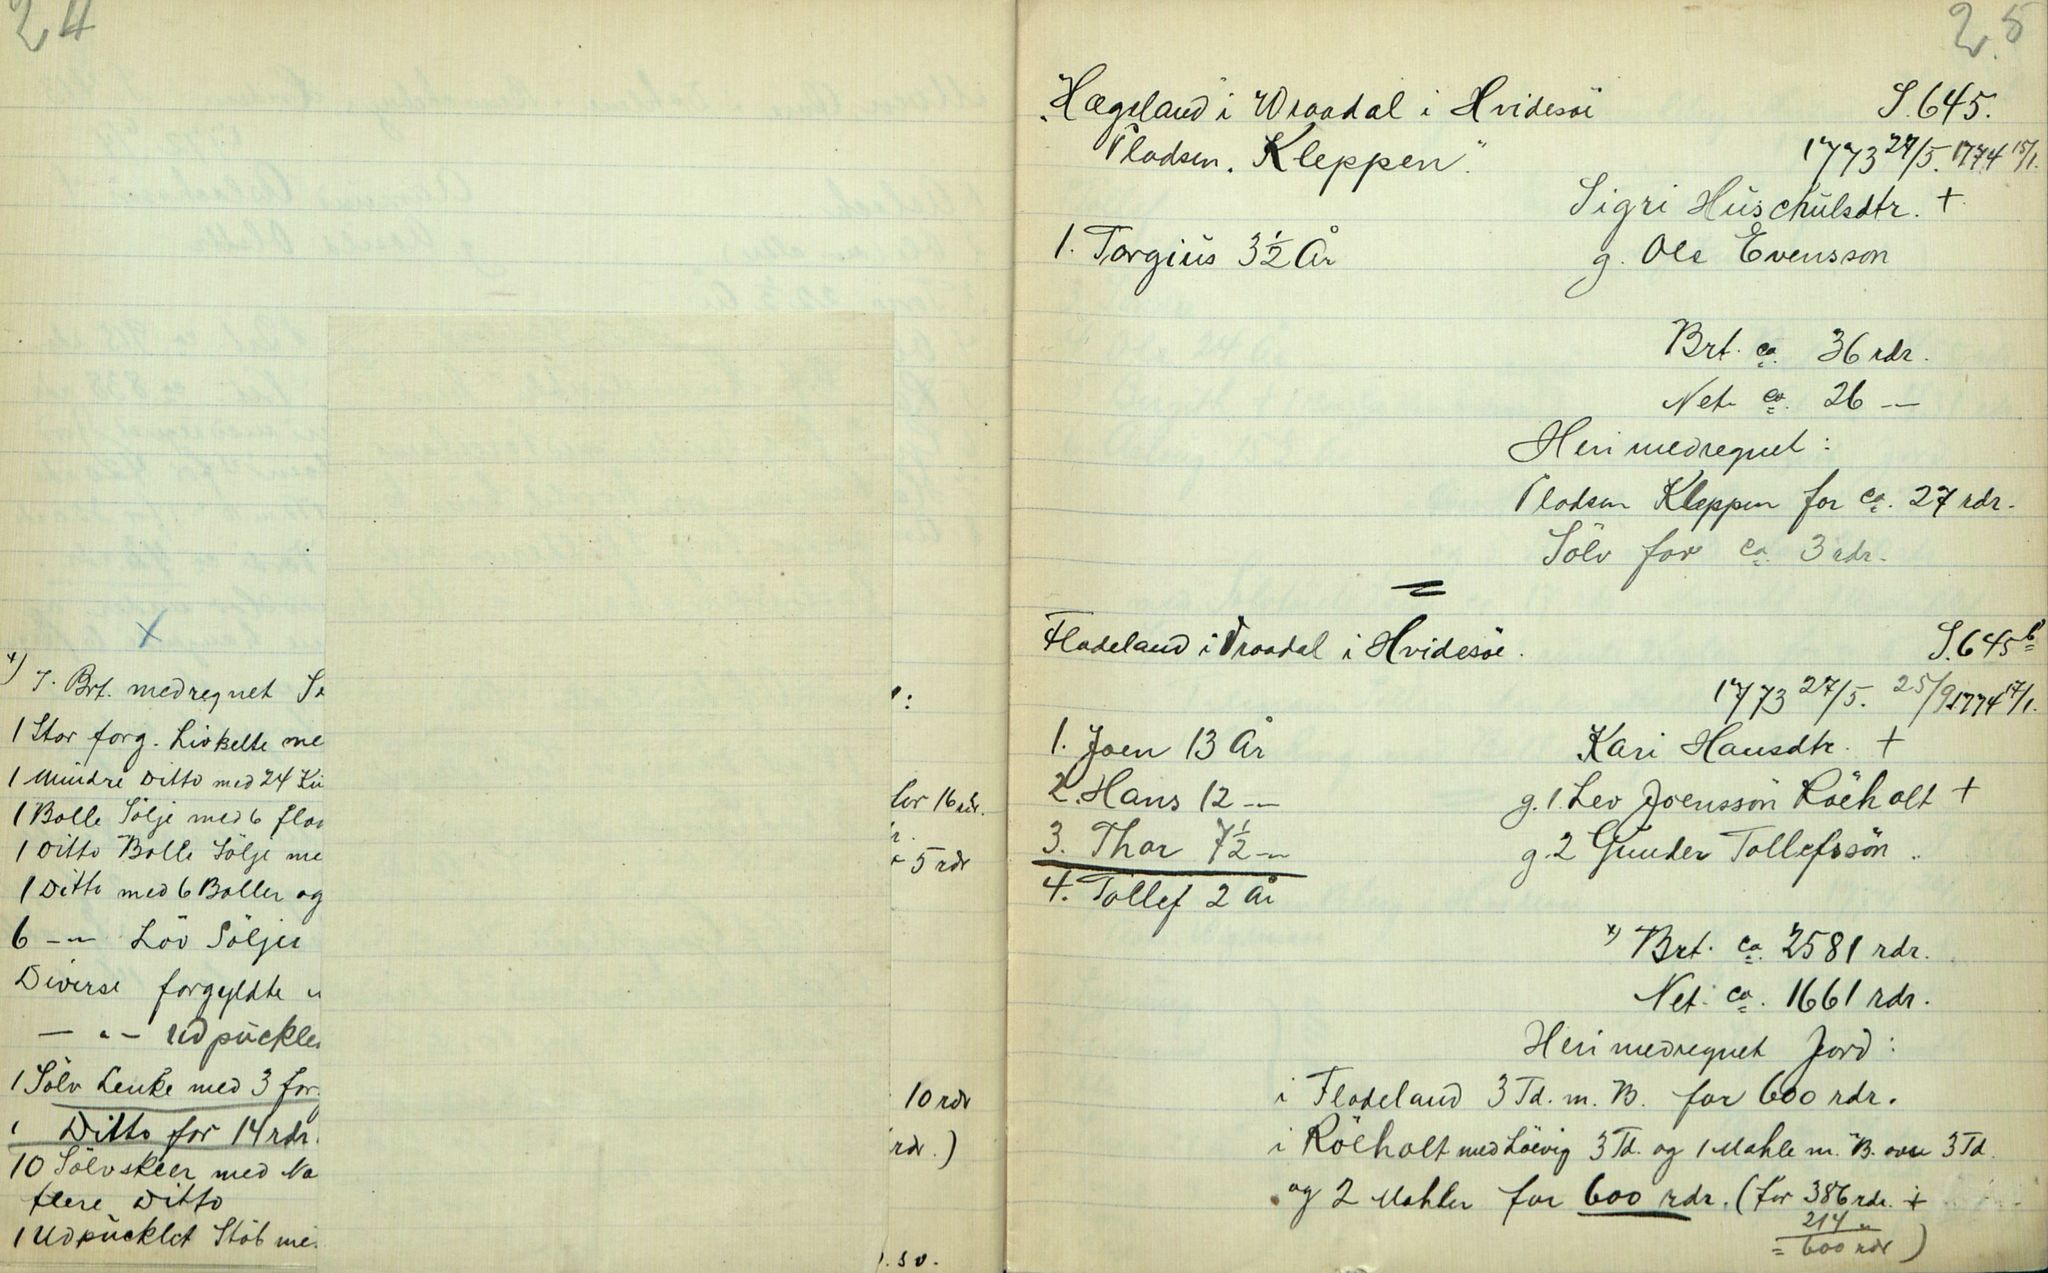 24
*) I. Brt. medregnet
1 Stor forg. Livkelte me
1 mindre Ditto med 24
1 Bolle Sölje med 6
1 Ditto Bolle Sölje me
1 Ditto med 6 Boller og
6 -"- Löv Söljer
Diverse forgyldte
- " - Udpuckle
1 Sölv Lenke med 3 for
1 Ditto for 14 rdr.
10 Sölvskeer med Na
flere Ditto
1 Udpücklet Stöb me
for 16 rdr.
5 rdr
10 rdr
rdr.)
25
Hægeland i Wraadal i Hvidesöe S. 645.
Pladsen "Kleppen" 1773 27/5. 1774 15/1.
Sigri Hüschulsdtr. +
1. Torgiüs 3½ År g. Ole Evensson
Brt. ca. 36 rdr.
Net. ca. 26 -"-
Heri medregnet:
Pladsen Kleppen for ca. 27 rdr.
Sölv for ca. 3 rdr.
Fladeland i Vraadal i Hvidesöe. S. 645 b
1773 27/5. 25/9 1774 17/1.
1. Joen 13 År Kari Hansdtr. +
2. Hans 12 -"- g. 1. Lev Joensson Röeholt +
3. Thor 7½ -"- g. 2 Gunder Tollefssön
4. Tollef 2 År
*) Brt. ca. 2581 rdr.
Net. ca. 1661 rdr.
Heri medregnet Jord:
i Fladeland 3 Td. m. B. for 600 rdr.
i Röeholt med Löevig 3 Td. og 1 Mahle m. B. over 3 Td.
og 2 Mahler for 600 rdr. (for 386 rdr. +
214 "
= 600 rdr)